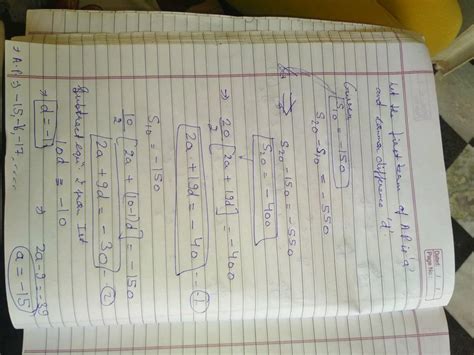 Date
Page No.
Let the first term of AP is 'a'
and common difference 'd'.
Given S₁₀ = -150
S₂₀ - S₁₀ = -550
S₂₀ - 150 = -550
S₂₀ = -400
⇒ 20/2 [2a + 19d] = -400
2a + 19d = -40 - ①
S₁₀ = -150
10/2 [2a + (10-1)d] = -150
2a + 9d = -30 - ②
Subtract eqn. 2 from Ist
10d = -10
⇒ d = -1 ⇒ 2a-9 = -39
a = -15
⇒ A.P ⇒ -15, -17 .....